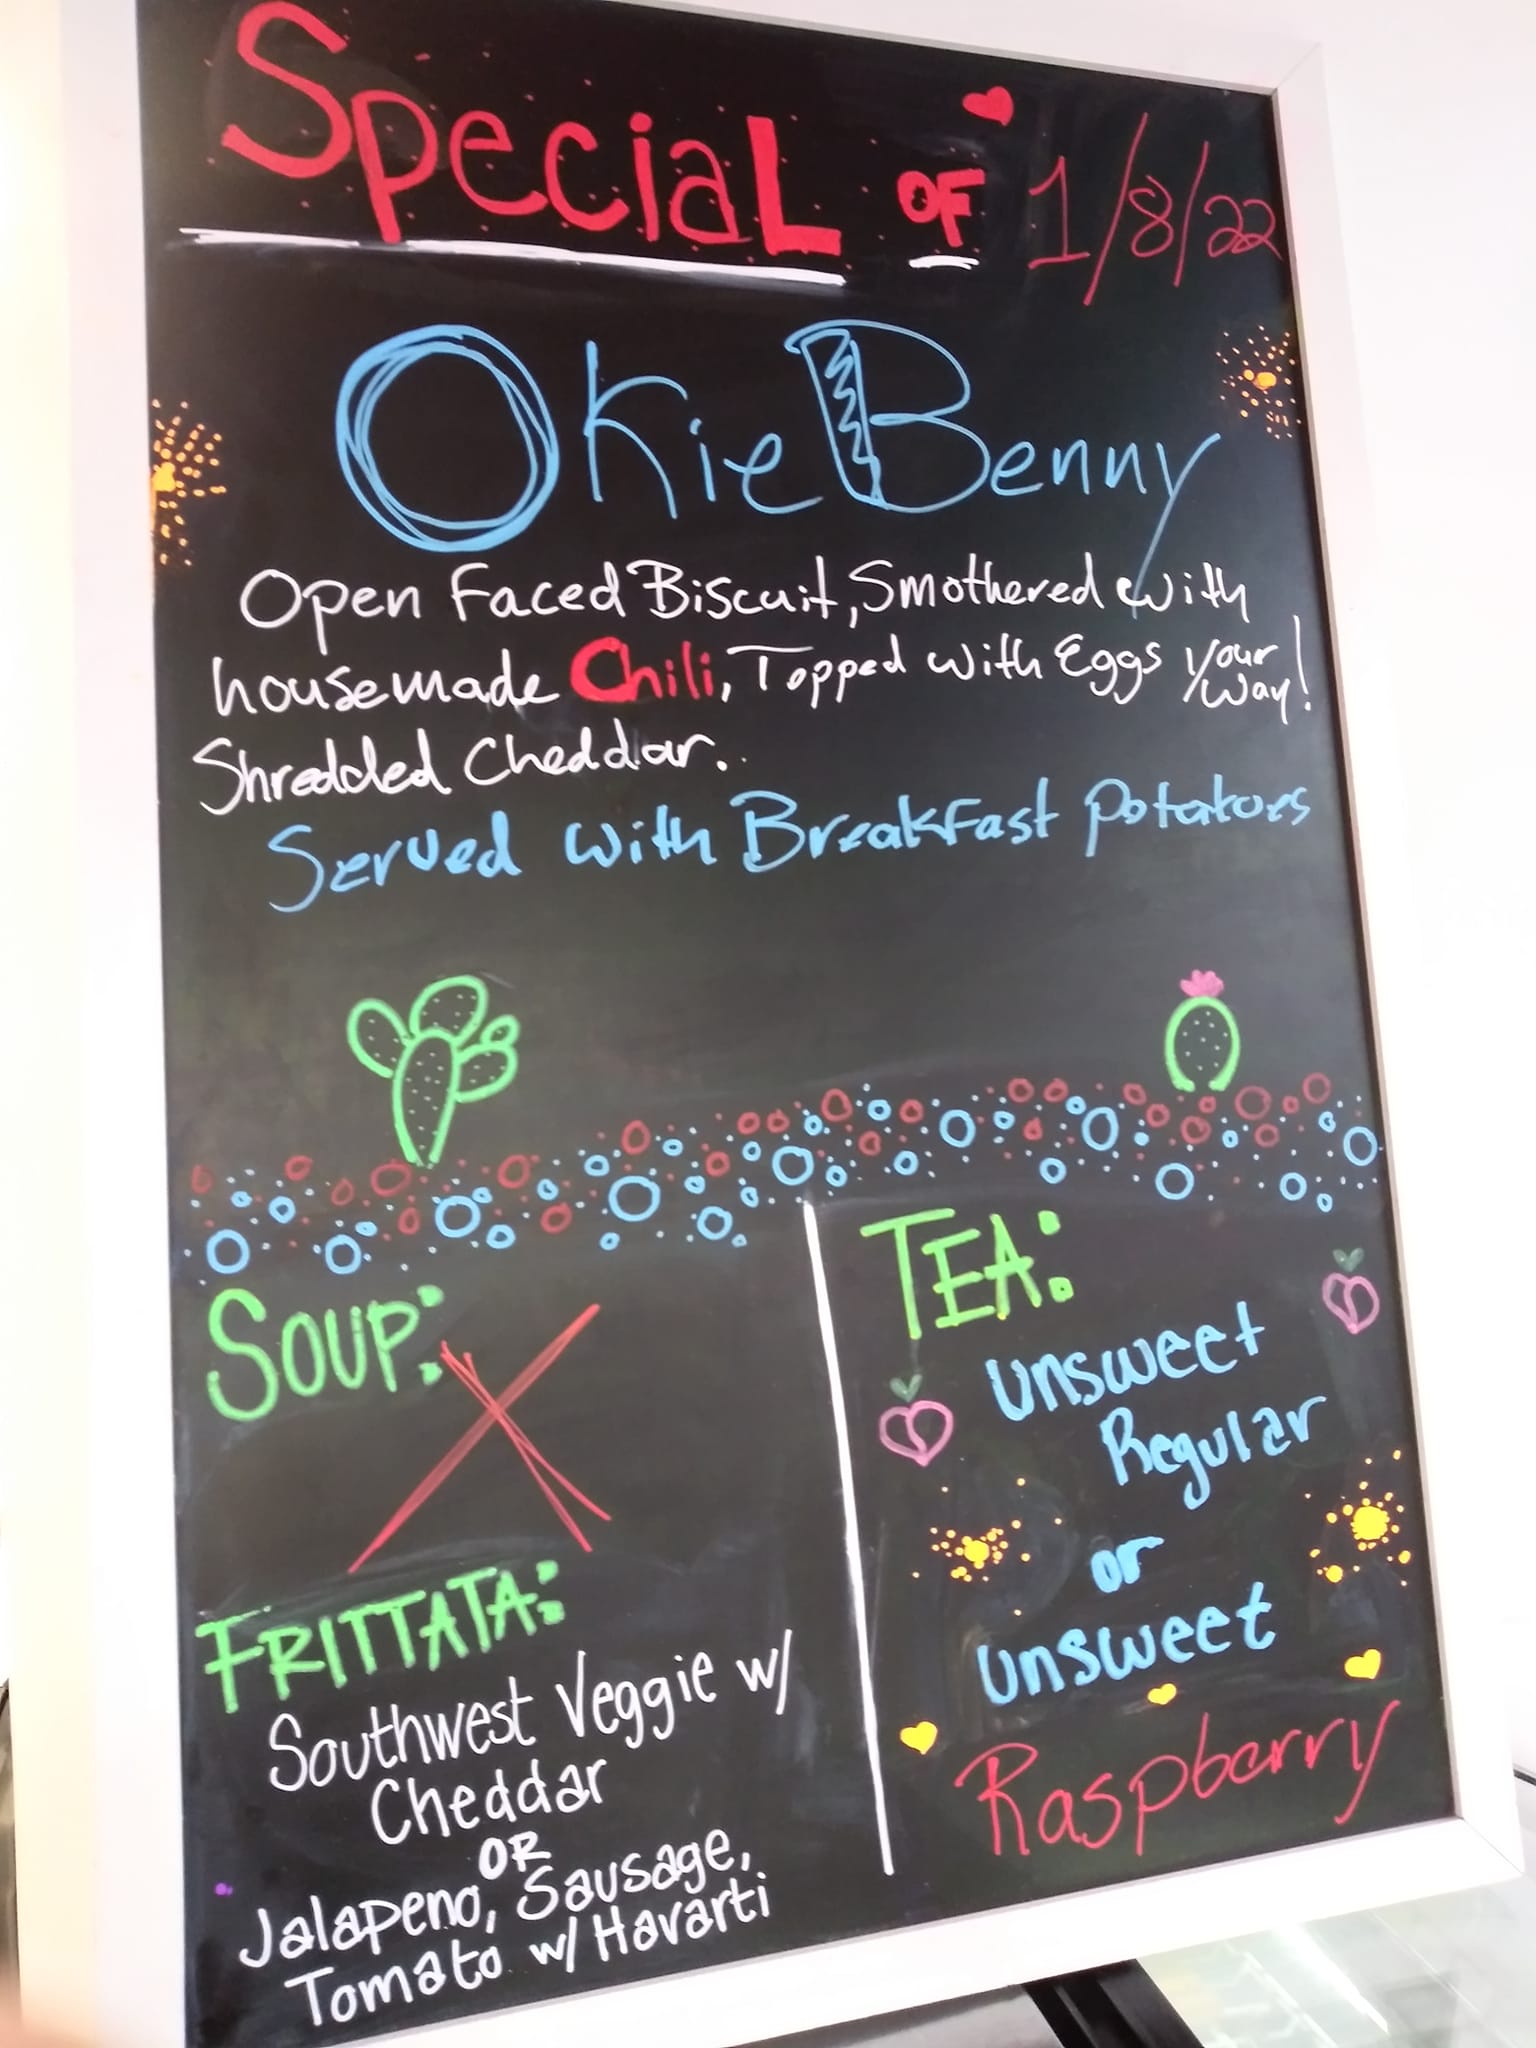 Special OF 1/8/22
Okie Benny
Open Faced Biscuit, Smothered with
housemade Chili, Topped with Eggs your way!
Shredded Cheddar.
Served with Breakfast potatoes
SOUP:
FRITTATA:
Southwest Veggie w/
Cheddar
OR
Jalapeno, Sausage,
Tomato w/ Havarti
TEA:
Unsweet
Regular
or
Unsweet
Raspberry